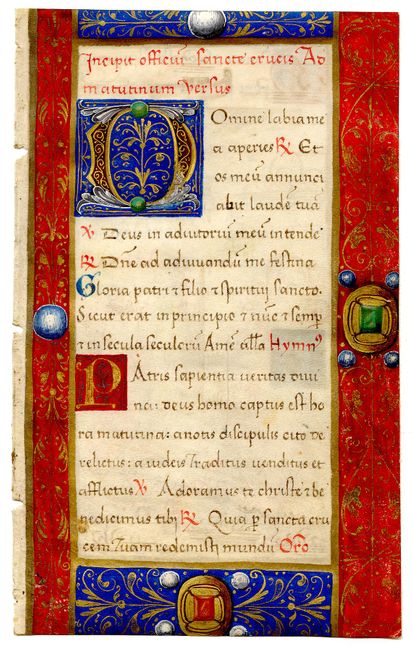 Incipit officiū sancte crucis Ad
matutinum Versus
Domine labia me
a aperies R Et
os meū annunci
abit laudē tuā
V Deus in adiutoriū meū intende
R Dn̄e ad adiuuandū me festina
Gloria patri et filio et spiritui sancto.
Sicut erat in principio et nūc et semp̄
et in secula seculorū Amē all̄a Hymn9
PAtris sapientia ueritas diui
na: deus homo captus est ho
ra matutina: a notis discipulis cito de
relictus: a iudeis Traditus uenditus et
afflictus V Adoramus te christe et be
nedicimus tibi R Quia p̄ sanctā cru
cem Tuam redemisti mundū Orō